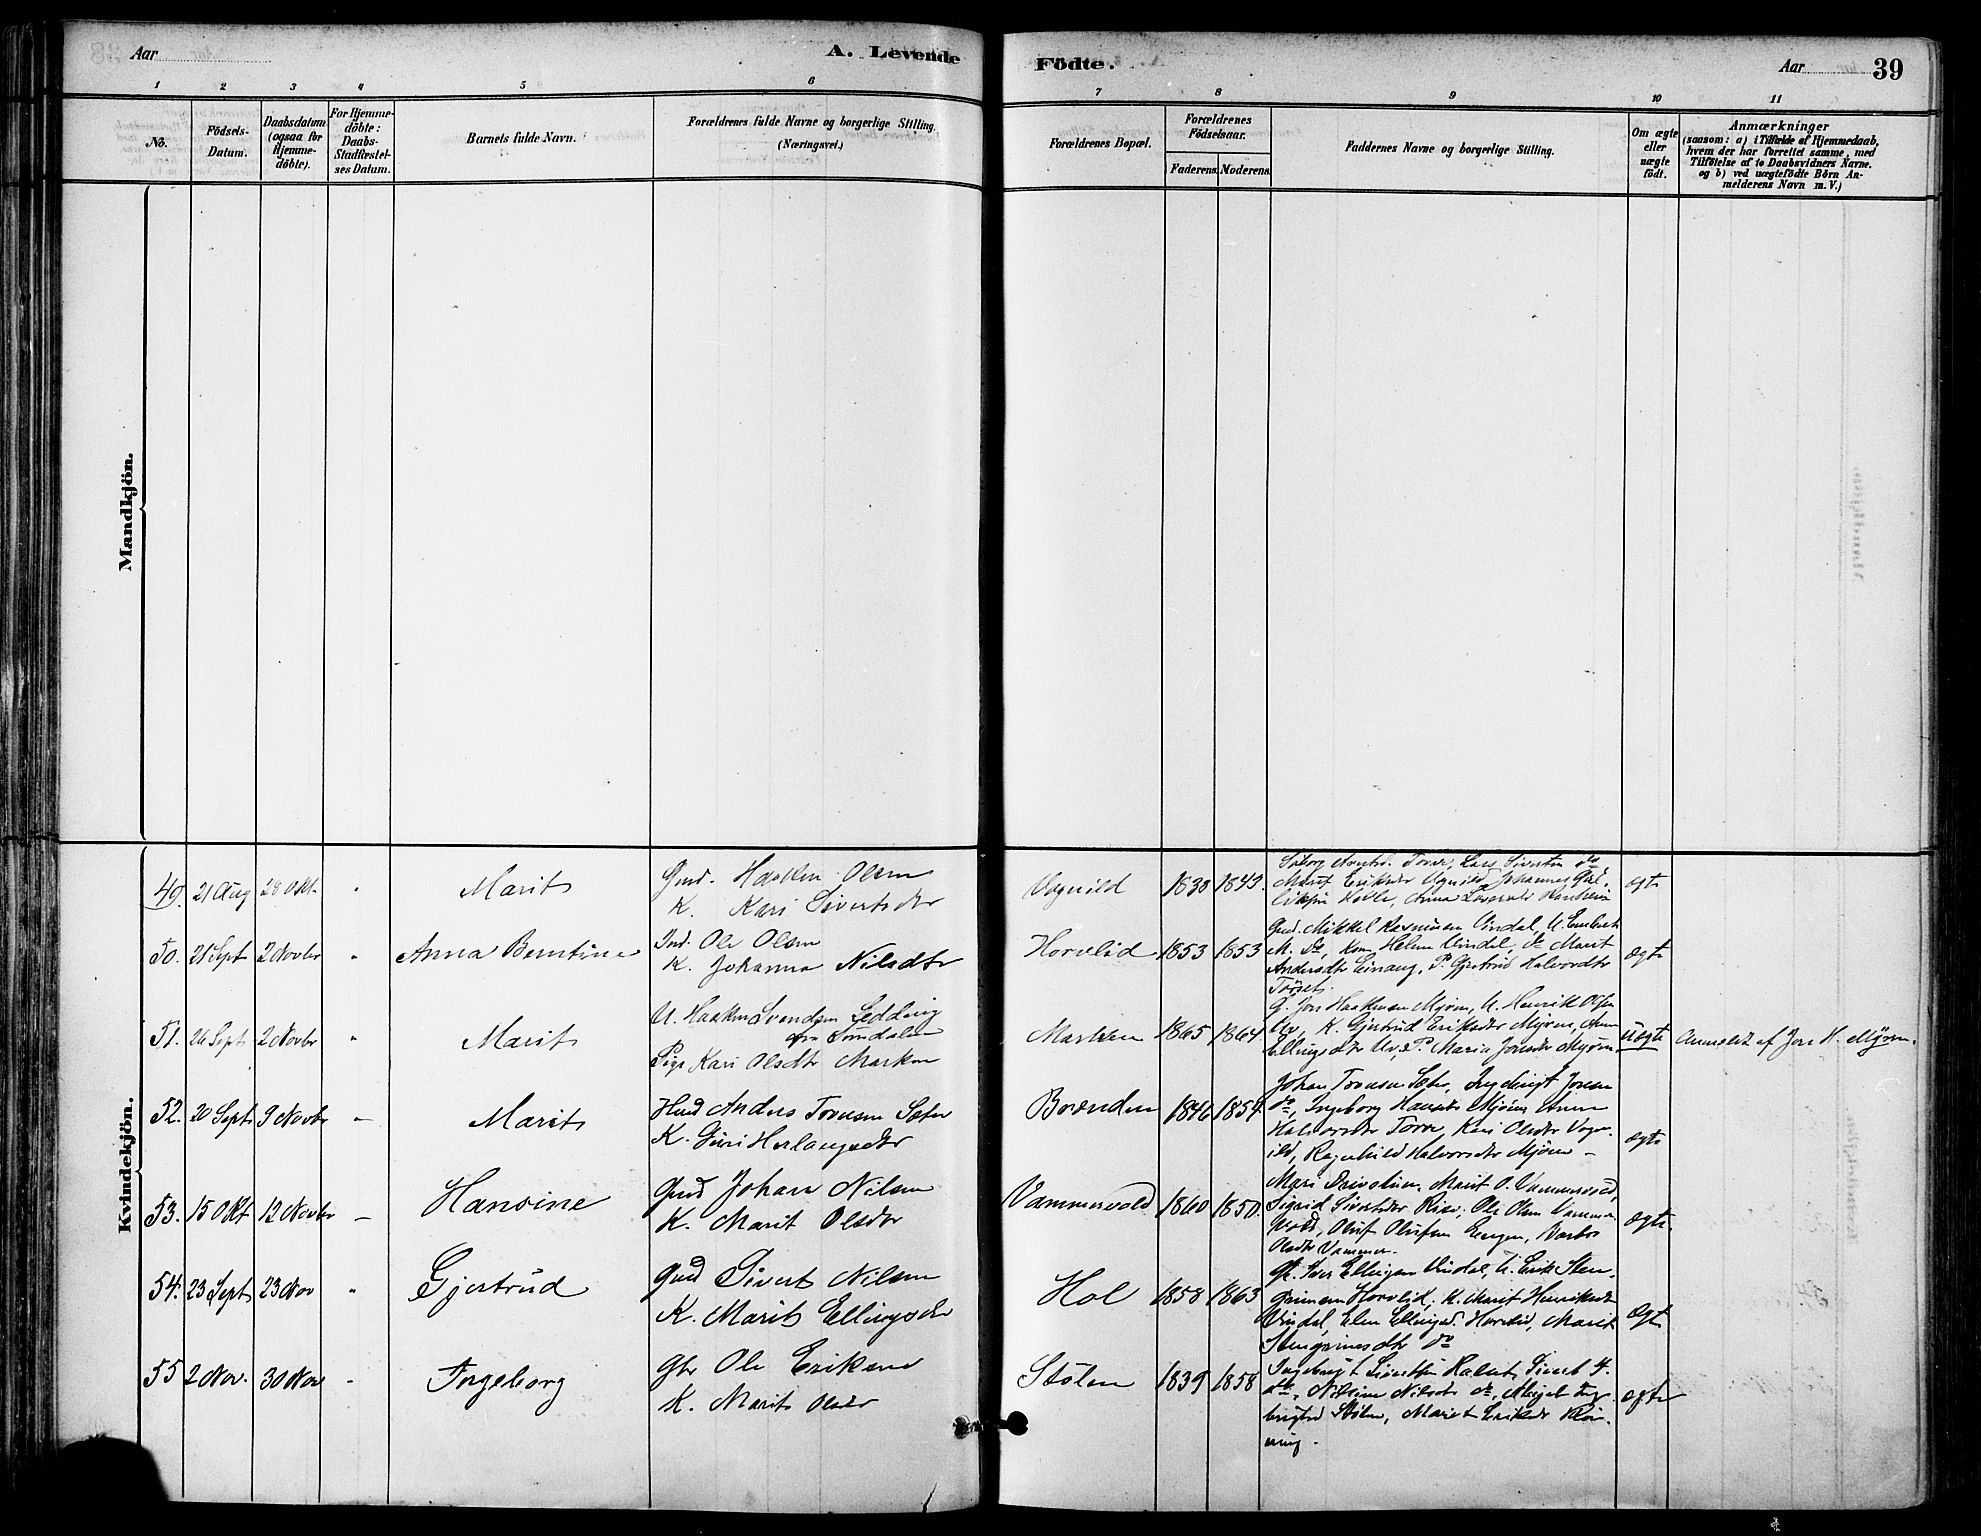 Aar
A. Levende
Födte.
Aar
39
1 2 3 4 5 6 7 8 9 10 11
No.
Födsels-Datum.
Daabsdatum (ogsaa for Hjemme-döbte).
For Hjemme-döbte: Daabs-Stadfæstel-ses Datum.
Barnets fulde Navn.
Forældrenes fulde Navne og borgerlige Stilling.
(Næringsvei.)
Forældrenes Bopæl.
Forældrenes Födselsaar.
Faderens. Moderens.
Faddernes Navne og borgerlige Stilling.
Om ægte eller uægte födt.
Anmærkninger
(saasom: a) i Tilfælde af Hjemmedaab,
hvem der har forrettet samme, med
Tilföielse af to Daabsvidners Navne.
og b) ved uægtefödte Börn An-
melderens Navn m. V.)
Mandkjön.
Kvindekjön.
49. 21 Aug 28 Okt. " Marit
Gmd. Haaken Olsen
K. Kari Sivertsdtr
Vognild 1838 1843.
Marit Eriksdtr Vognild, Johannes
ægte
50. 21 Sept 2 Novbr " Anna Berntine
Ind. Ole Olsen
K. Johanna Nilsdtr
Horvlid 1853 1853
Gmd. Mikkel Rasmussen Vindal, U. Engebret
M. do, Kone Helene Vindal, do Marit
Andersdtr Einang, P. Gjertrud Halvordtr
Torset.
ægte
51. 26 Sept 2 Novbr " Marit
U. Haaken Svendsen
fra Sundalen
Pige Kari Olsdtr Marken
Marken 1865 1864
G. Jon Haakensen Mjøen, U. Henrik Olsen
K. Gjertrud Eriksdtr Mjøen,
Ellingsdtr P. Maria Jonsdtr Mjøen
Uægte
Anmeldt af Jon H. Mjøen.
52. 20 Sept 9 Novbr — Marit
Anders Tronsen Sæter
K. Guri Herlaugsdtr
Bovenden 1846 1854
Johan Tronsen Sæter, Ingebrigt Jonsen
do, Ingeborg Mjøen,
Halvorsdtr Torve, Kari Olsdtr Vogn-
ild, Ragnhild Halvorsdtr Mjøen —
ægte
53. 15 Okt 12 Novbr — Hansine
Gmd Johan Nilsen
K. Marit Olsdtr
Vammervold 1860 1850.
Mari Drivstuen, Marit O. Vammervold,
Sigrid Sivertsdtr Rise, Ole Olsen Vammer-
vold, Oluf Olufsen
Olsdtr Vammer.
ægte
54. 23 Sept 23 Nov " Gjertrud
Gmd Sivert Nilsen
K. Marit Ellingsdtr
Hol 1858 1863
Iver Ellingsen Vindal, U. Erik Sten-
grimsen Horvlid, K. Marit Henriksdtr
Vindal, Elen Ellingsd. Horvlid, Marit
Stengrimsdtr do
ægte
55 2 Nov. 30 Nov " Ingeborg
Gbr Ole Eriksen
K. Marit Olsdtr
Stølen 1839 1858
Ingebrigt Sivertsen
do, Nilsine Nilsdtr do, Inge-
brigtsd Stølen, Marit Eriksdtr
ægte